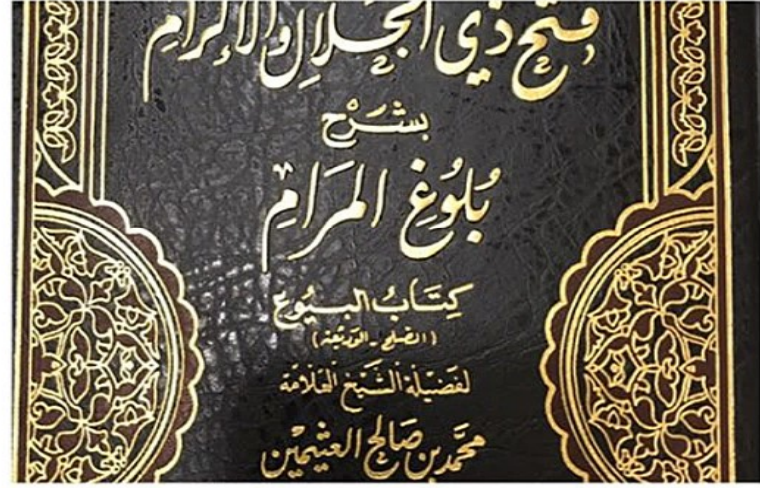 فتح ذي الجلال والإكرام
بشرح
بلوغ المرام
كتاب البيوع
(الصلح - الوديعة)
لفضيلة الشيخ العلامة
محمد بن صالح العثيمين